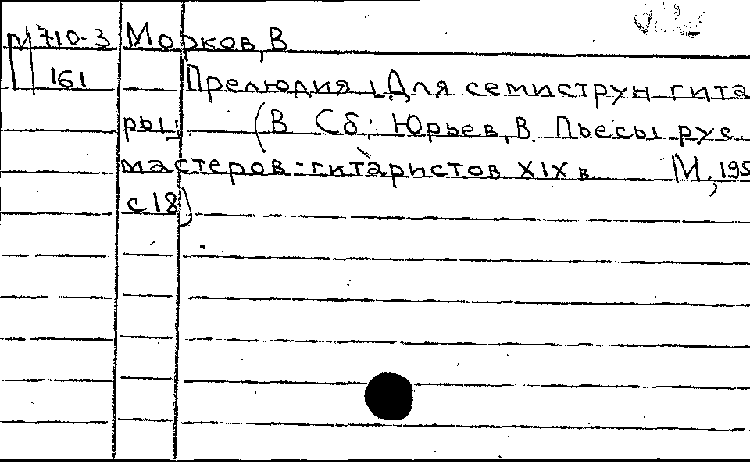 М 710-3 Морков, В
161 Прелюдия [Для семиструн гита
ры] (В Сб: Юрьев, В. Пьесы рус
мастеров-гитаристов XIX в М, 195
с 18)